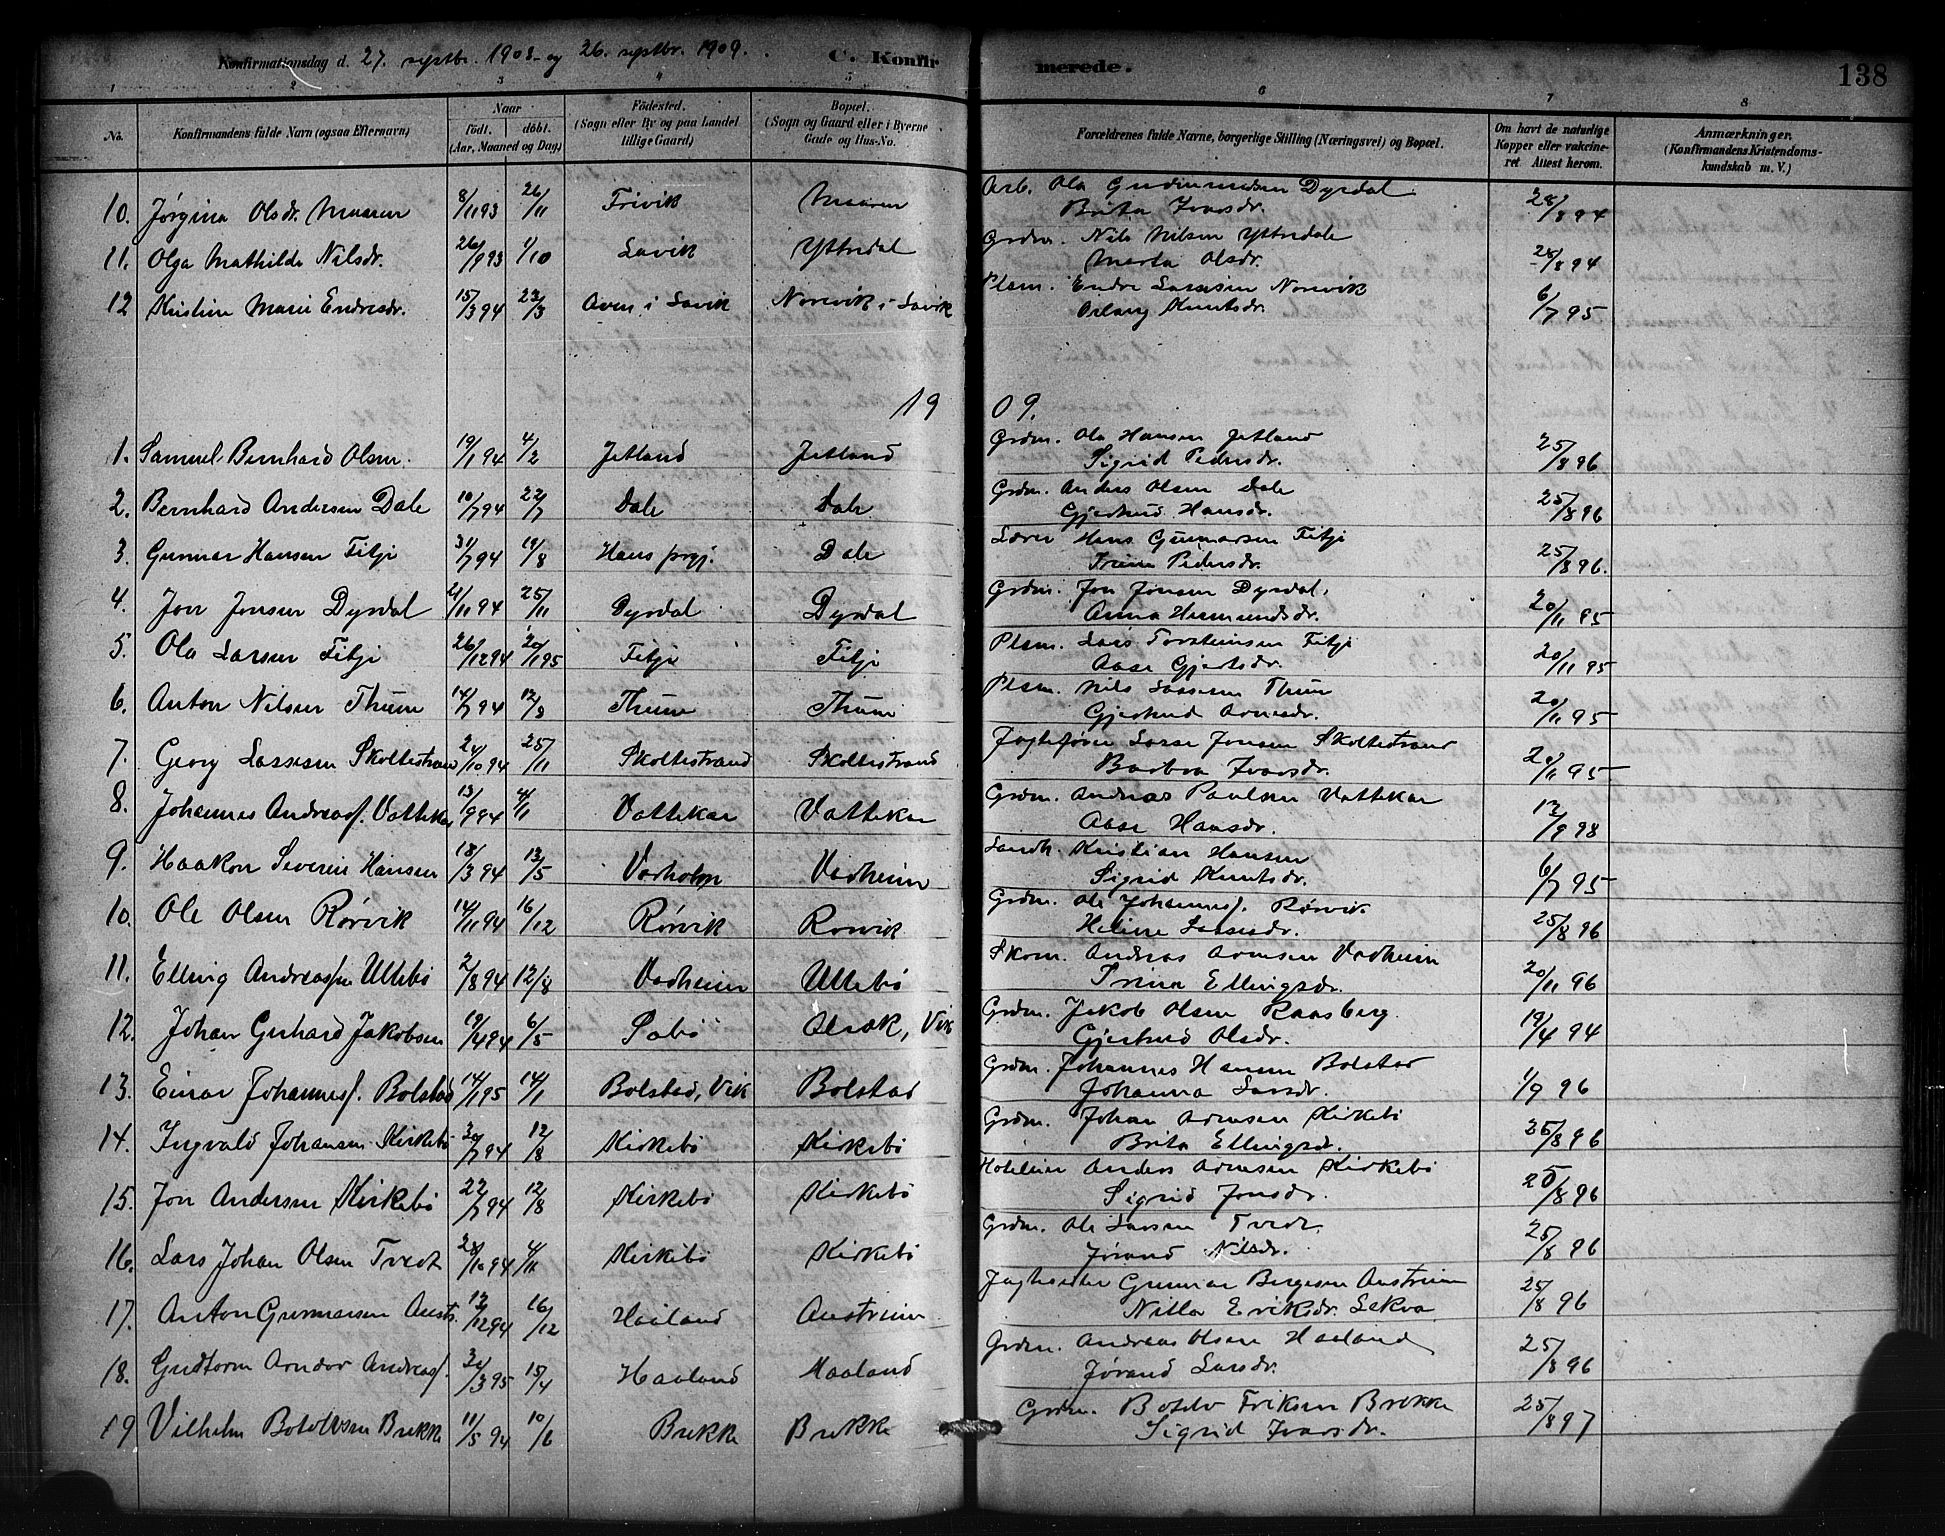 Konfirmationsdag d. 27. septbr. 1908 og 26. septbr. 1909. C. Konfirmerede. 138
1 2 3 4 5 6 7 8
No. Konfirmandens fulde Navn (ogsaa Efternavn) Naar födt. döbt. (Aar, Maaned og Dag) Födested. (Sogn eller By og paa Landet tillige Gaard) Bopæl. (Sogn og Gaard eller i Byerne Gade og Hus-No. Forældrenes fulde Navne, borgerlige Stilling (Næringsvei) og Bopæl. Om havt de naturlige Kopper eller vakcineret. Attest herom. Anmærkninger. (Konfirmandens Kristendomskundskab m. V.)
10. Jørgina Olsdr. Maaren 8/11 93 26/11 Frivik Maaren Arb. Ola Gudmundsen Dyrdal 28/8 94
Brita Ivarsdr.
11. Olga Mathilde Nilsdr. 26/9 93 1/10 Lavik Yttredal Grdm. Nils Nilsen Yttredale 28/8 94
Marta Olsdr.
12 Kristine Marie Endresdr. 15/3 94 23/3 Aven i Lavik Norevik i Lavik Plsm. Endre Lassesen Norevik 6/7 95
Knutsdr.
19 09.
1. Samuel Bernhard Olsen. 19/1 94 4/2 Jetland Jetland Grdm. Ola Hansen Jetland 25/8 96
Sigrid Pedersdr.
2. Bernhard Andersen Dale 10/7 94 22/7 Dale Dale Grdm. Anders Olsen Dale 25/8 96
Gjertrud Hansdr.
3. Gunnar Hansen Fitje 31/7 94 19/8 Haus prgj. Dale Lærer Hans Gunnarsen Fitje 25/8 96.
Trine Pedersdr.
4. Jon Jonsen Dyrdal 21/11 94 25/11 Dyrdal Dyrdal Grdm. Jon Jonsen Dyrdal. 20/11 95
Anna Hermundsdr.
5. Ola Larsen Fitje 26/12 94 20/1 95 Fitje Fitje Plsm. Lars Torsteinsen Fitje 20/11 95
Aase Gjertsdr.
6. Anton Nilsen Thune 14/7 94 12/8 Thune Thune Plsm. Nils Lassesen Thune 20/11 95
Gjertrud Arnesdr.
7. Georg Lassesen Skoltestrand 24/10 94 25/11 Skoltestrand Skoltestrand Jægtefører Lasse Jonsen Skoltestrand 20/11 95
Barbra Ivarsdr.
8. Johannes Andreass. Vattekar 13/9 94 4/1 Vattekar Vattekar Grdm. Andreas Paulsen Vattekar 12/9 98
Aase Hansdr.
9. Haakon Severin Hansen 18/3 94 13/5 Vadheim Landh. Kristian Hansen 6/7 95
Sigrid Knutsdr.
10. Ole Olsen Rørvik 14/11 94 16/12 Rørvik Rørvik Grdm. Ole Johanness. Rørvik 25/8 96
Heline Lassesdr.
11. Elling Andreassen Ullebø 2/8 94 12/8 Vadheim Ullebø Skom. Andreas Arnesen Vadheim 20/11 96
Trina Ellingsdr.
12. Johan Gerhard Jakobsen 19/4 94 6/5 Sæbø Vik Grdm. Jakob Olsen Raasberg. 19/4 94
Gjertrud Olsdr.
13. Einar Johanness. Bolstad 14/1 95 14/1 Bolstad, Vik Bolstad Grdm. Johannes Hansen Bolstad 1/9 96
Johanna Larsdr.
14. Ingvald Johansen Kirkebø 30/7 94 12/8 Kirkebø Kirkebø Grdm. Johan Arnesen Kirkebø 25/8 96
Brita Ellingsdr.
15. Jon Andersen Kirkebø 22/7 94 12/8 Kirkebø Kirkebø Anders Arnesen Kirkebø 25/8 96
Sigrid Jonsdr.
16. Lars Johan Olsen Tvedt 28/10 94 4/11 Kirkebø Kirkebø Grdm. Ole Larsen Tvedt 25/8 96
Jørand Nilsdr.
17. Anton Gunnarsen Austr. 12/12 94 16/12 Haaland Austreim Gunnar Børgesen Austreim 25/8 96
Nilla Eriksdr. Lekva
18. Gudtorm Arndor Andreass. 31/3 95 15/4 Haaland Haaland Grdm. Andreas Olsen Haaland 25/8 96
Jørand Larsdr.
19 Vilhelm Botolvsen Brekke 11/5 94 10/6 Brekke Brekke Grdm. Botolv Eriksen Brekke 25/8 97
Sigrid Ivarsdr.